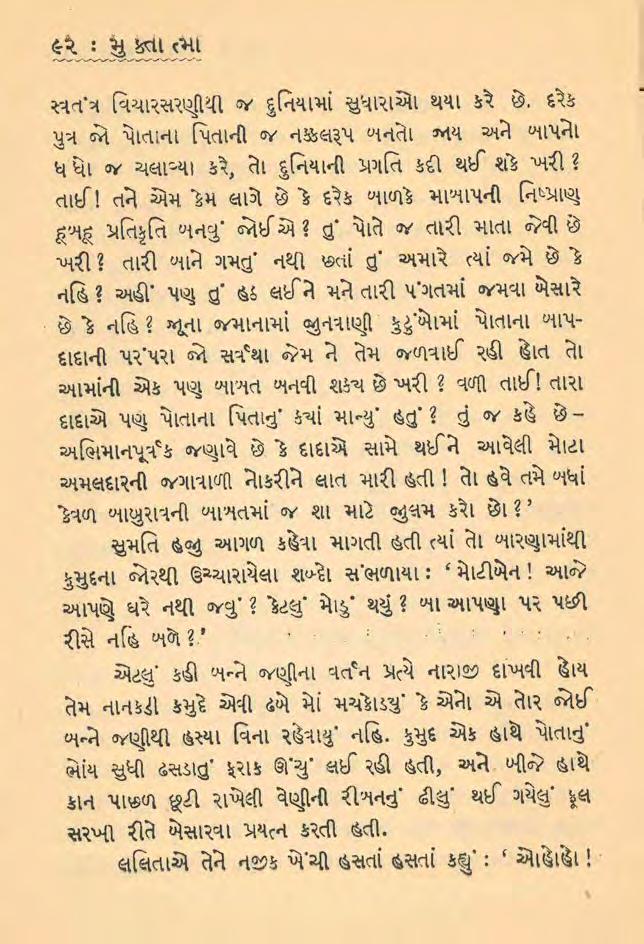 ૯૨ : મુ ક્તા ત્મા
સ્વતંત્ર વિચારસરણીથી જ દુનિયામાં સુધારાઓ થયા કરે છે. દરેક
પુત્ર જો પોતાના પિતાની જ નક્કલરૂપ બનતો જાય અને બાપનો
ધંધો જ ચલાવ્યા કરે, તો દુનિયાની પ્રગતિ કદી થઈ શકે ખરી ?
તાઈ! તને એમ કેમ લાગે છે કે દરેક બાળકે માબાપની નિષ્પ્રાણ
હૂબહૂ પ્રતિકૃતિ બનવું જોઈએ? તું પોતે જ તારી માતા જેવી છે
ખરી? તારી બાને ગમતું નથી છતાં તું અમારે ત્યાં જમે છે કે
નહિ? અહીં પણ તું હઠ લઈને મને તારી પંગતમાં જમવા બેસારે
છે કે નહિ? જૂના જમાનામાં જુનવાણી કુટુંબોમાં પોતાના બાપ-
દાદાની પરંપરા જો સર્વથા જેમ ને તેમ જળવાઈ રહી હોત તો
આમાંની એક પણ બાબત બનવી શક્ય છે ખરી ? વળી તાઈ! તારા
દાદાએ પણ પોતાના પિતાનું ક્યાં માન્યું હતું? તું જ કહે છે –
અભિમાનપૂર્વક જણાવે છે કે દાદાએ સામે થઈને આવેલી મોટા
અમલદારની જગાવાળી નોકરીને લાત મારી હતી! તો હવે તમે બધાં
કેવળ બાબુરાવની બાબતમાં જ શા માટે જુલમ કરો છો?’
સુમતિ હજી આગળ કહેવા માગતી હતી ત્યાં તો બારણામાંથી
કુમુદના જોરથી ઉચ્ચારાયેલા શબ્દો સંભળાયા : ‘ મોટીબેન! આજે
આપણે ઘરે નથી જવું? કેટલું મોડું થયું? બા આપણા પર પછી
રીસે નહિ બળે?’
એટલું કહી બન્ને જણીના વર્તન પ્રત્યે નારાજી દાખવી હોય
તેમ નાનકડી કમુદે એવી ઢબે મોં મચકોડયું કે એનો એ તોર જોઈ
બન્ને જણીથી હસ્યા વિના રહેવાયું નહિ. કુમુદ એક હાથે પોતાનું
ભોંય સુધી ઢસડાતું ફરાક ઊંચું લઈ રહી હતી, અને બીજે હાથે
કાન પાછળ છૂટી રાખેલી વેણીની રીબનનું ઢીલું થઈ ગયેલું ફૂલ
સરખી રીતે બેસારવા પ્રયત્ન કરતી હતી.
લલિતાએ તેને નજીક ખેંચી હસતાં હસતાં કહ્યું : ‘ ઓહોહો !